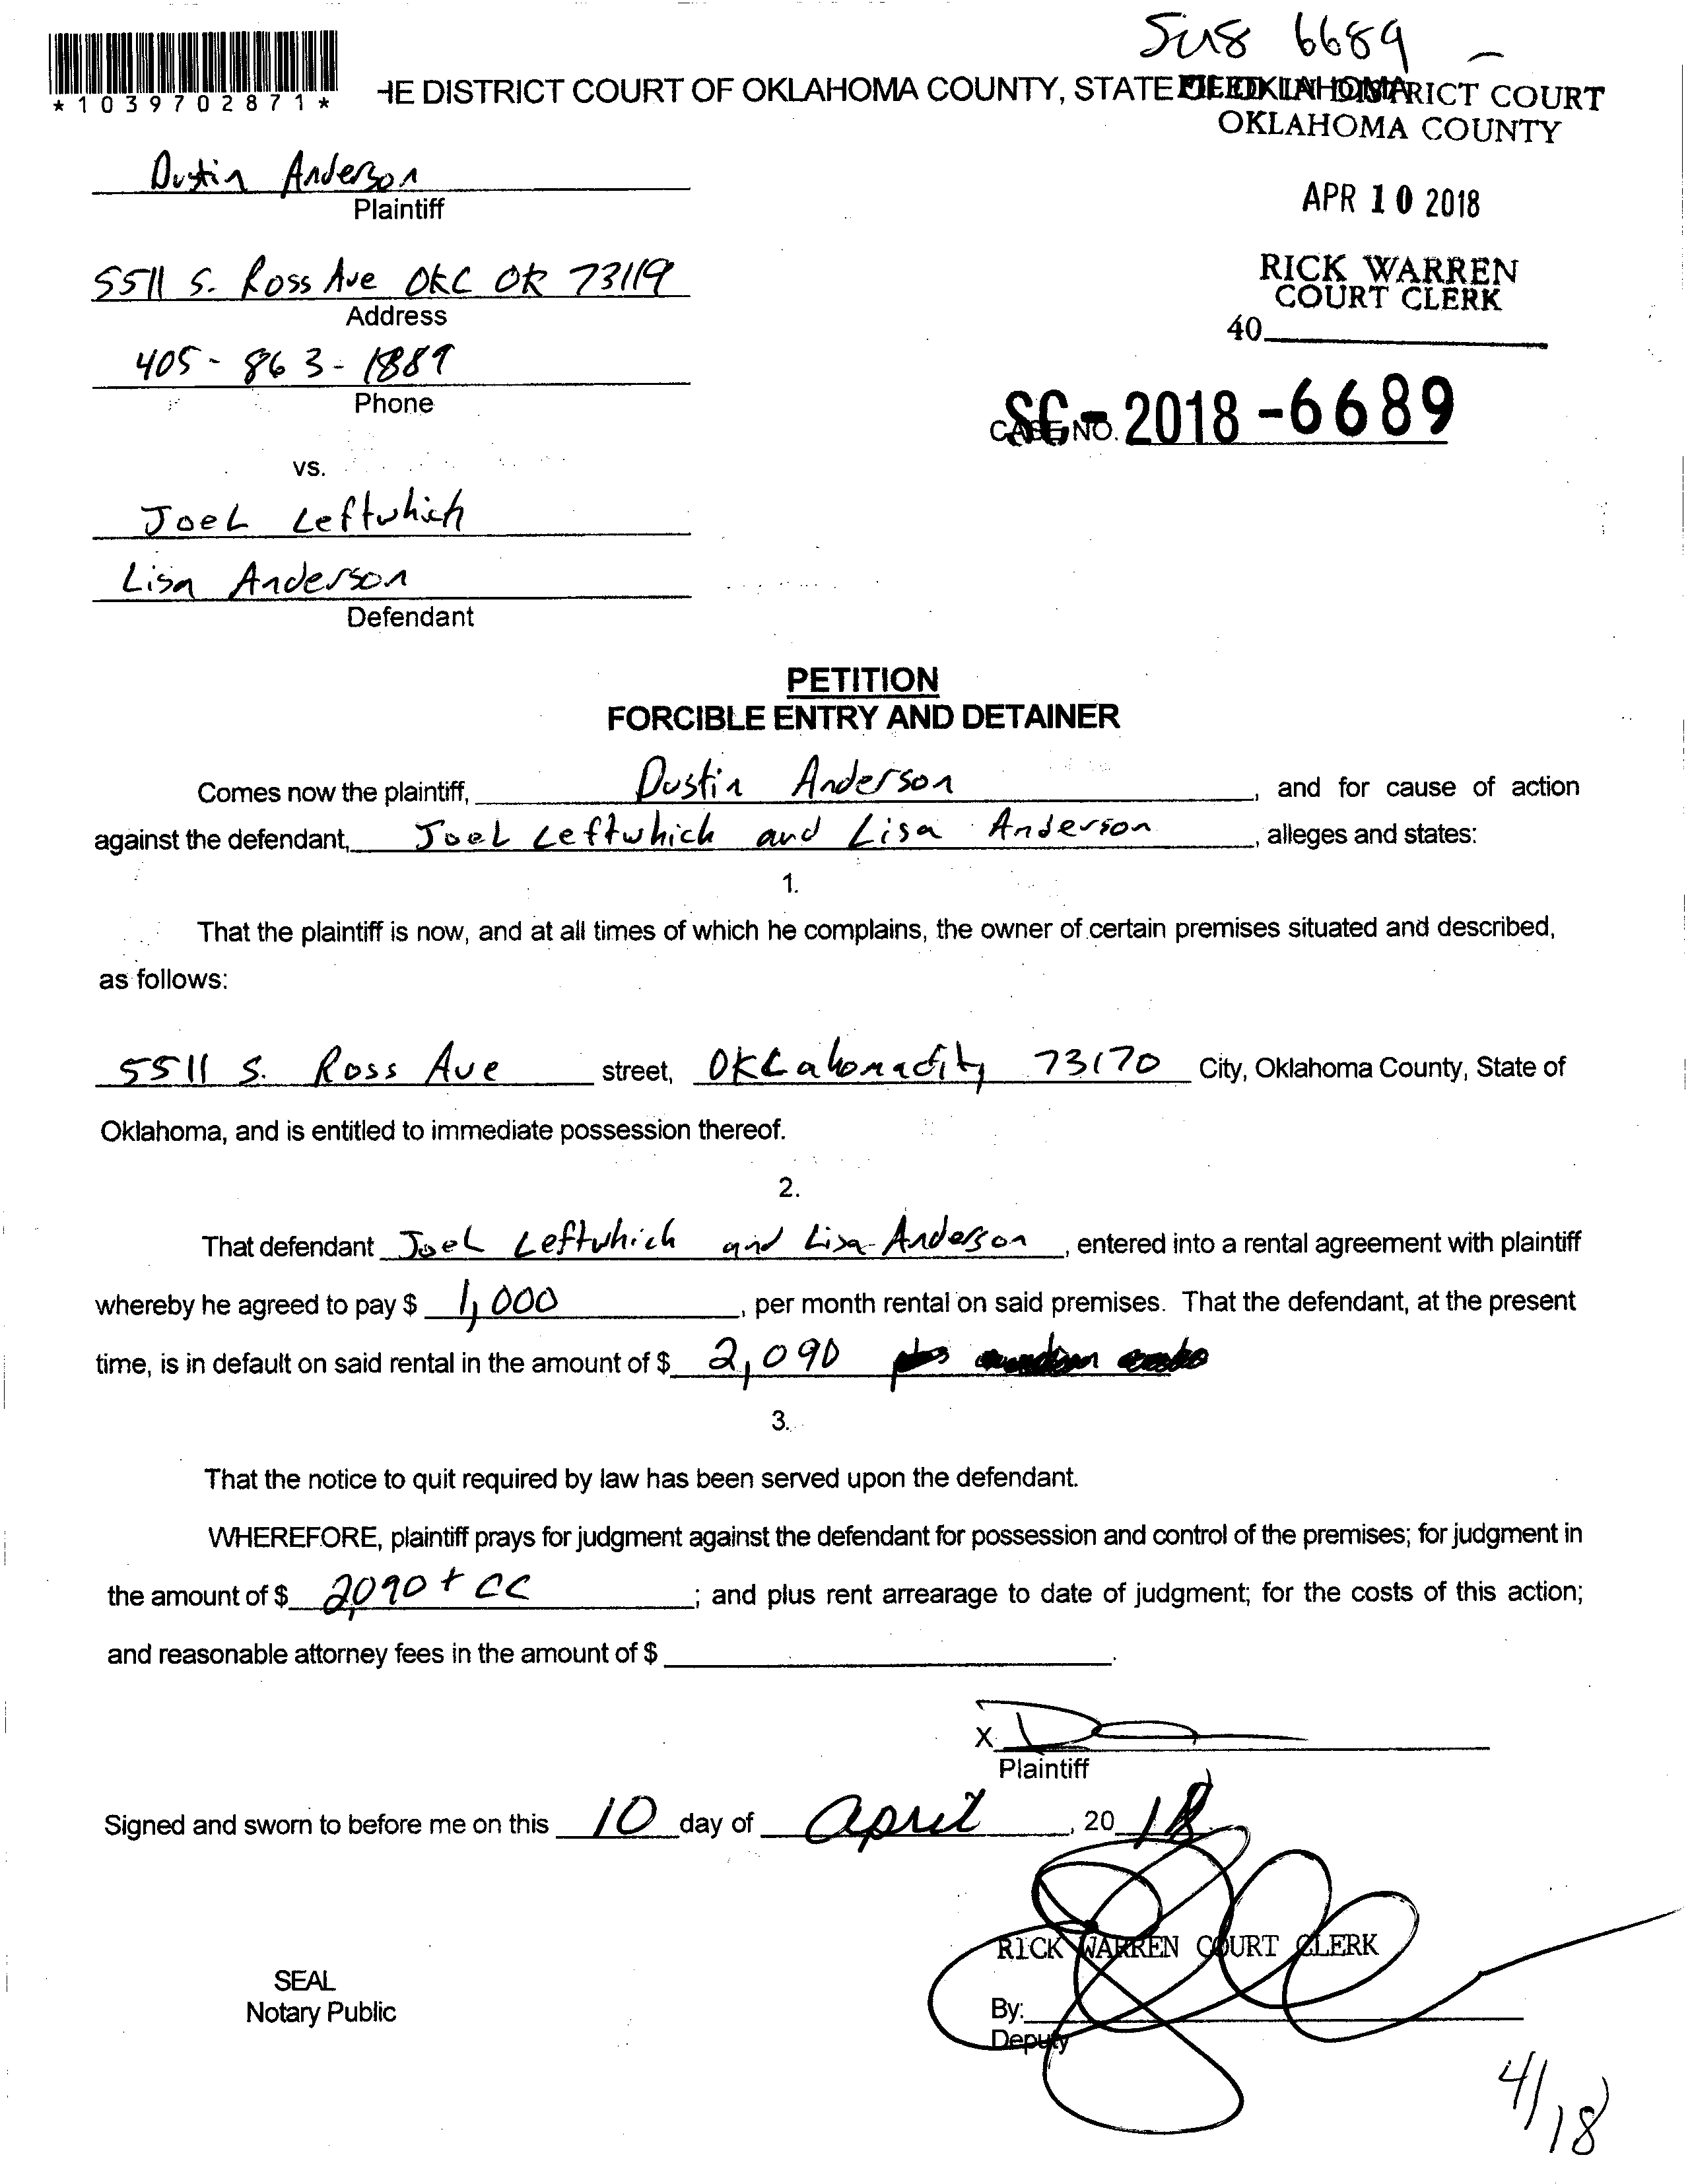 5458 6689
*1039702871*
HE DISTRICT COURT OF OKLAHOMA COUNTY, STATE OF OKLAHOMA
FILED IN DISTRICT COURT
OKLAHOMA COUNTY
Dustin Anderson
Plaintiff
APR 10 2018
5511 S. Ross Ave OKC OK 73119
Address
RICK WARREN
COURT CLERK
40
405-863-1889
Phone
CASE NO. SC-2018-6689
vs.
Joel Leftwhich
Lisa Anderson
Defendant
PETITION
FORCIBLE ENTRY AND DETAINER
Comes now the plaintiff, Dustin Anderson, and for cause of action
against the defendant, Joel Leftwhich and Lisa Anderson, alleges and states:
1.
That the plaintiff is now, and at all times of which he complains, the owner of certain premises situated and described,
as follows:
5511 S. Ross Ave street, OKLahomacity 73170 City, Oklahoma County, State of
Oklahoma, and is entitled to immediate possession thereof.
2.
That defendant Joel Leftwhich and Lisa Anderson, entered into a rental agreement with plaintiff
whereby he agreed to pay $ 1,000, per month rental on said premises. That the defendant, at the present
time, is in default on said rental in the amount of $ 2,090
3.
That the notice to quit required by law has been served upon the defendant.
WHEREFORE, plaintiff prays for judgment against the defendant for possession and control of the premises; for judgment in
the amount of $ 2,090 + CC; and plus rent arrearage to date of judgment; for the costs of this action;
and reasonable attorney fees in the amount of $.
X
Plaintiff
Signed and sworn to before me on this 10 day of april, 20 18.
RICK WARREN COURT CLERK
SEAL
Notary Public
By:
Deputy
4/18